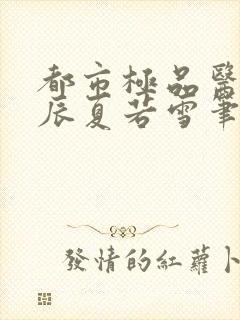 都市極品醫
辰夏若雪筆
發情的紅蘿卜